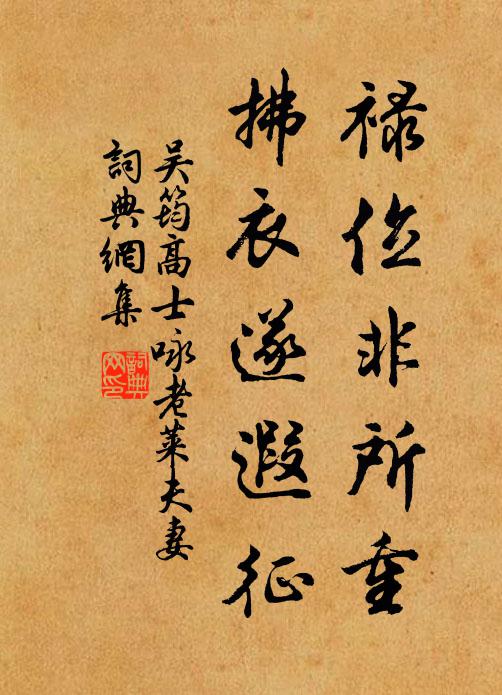 禄位非所重
拂衣遂遐征
吴筠高士咏老莱夫妻
词典網集
詞典網印